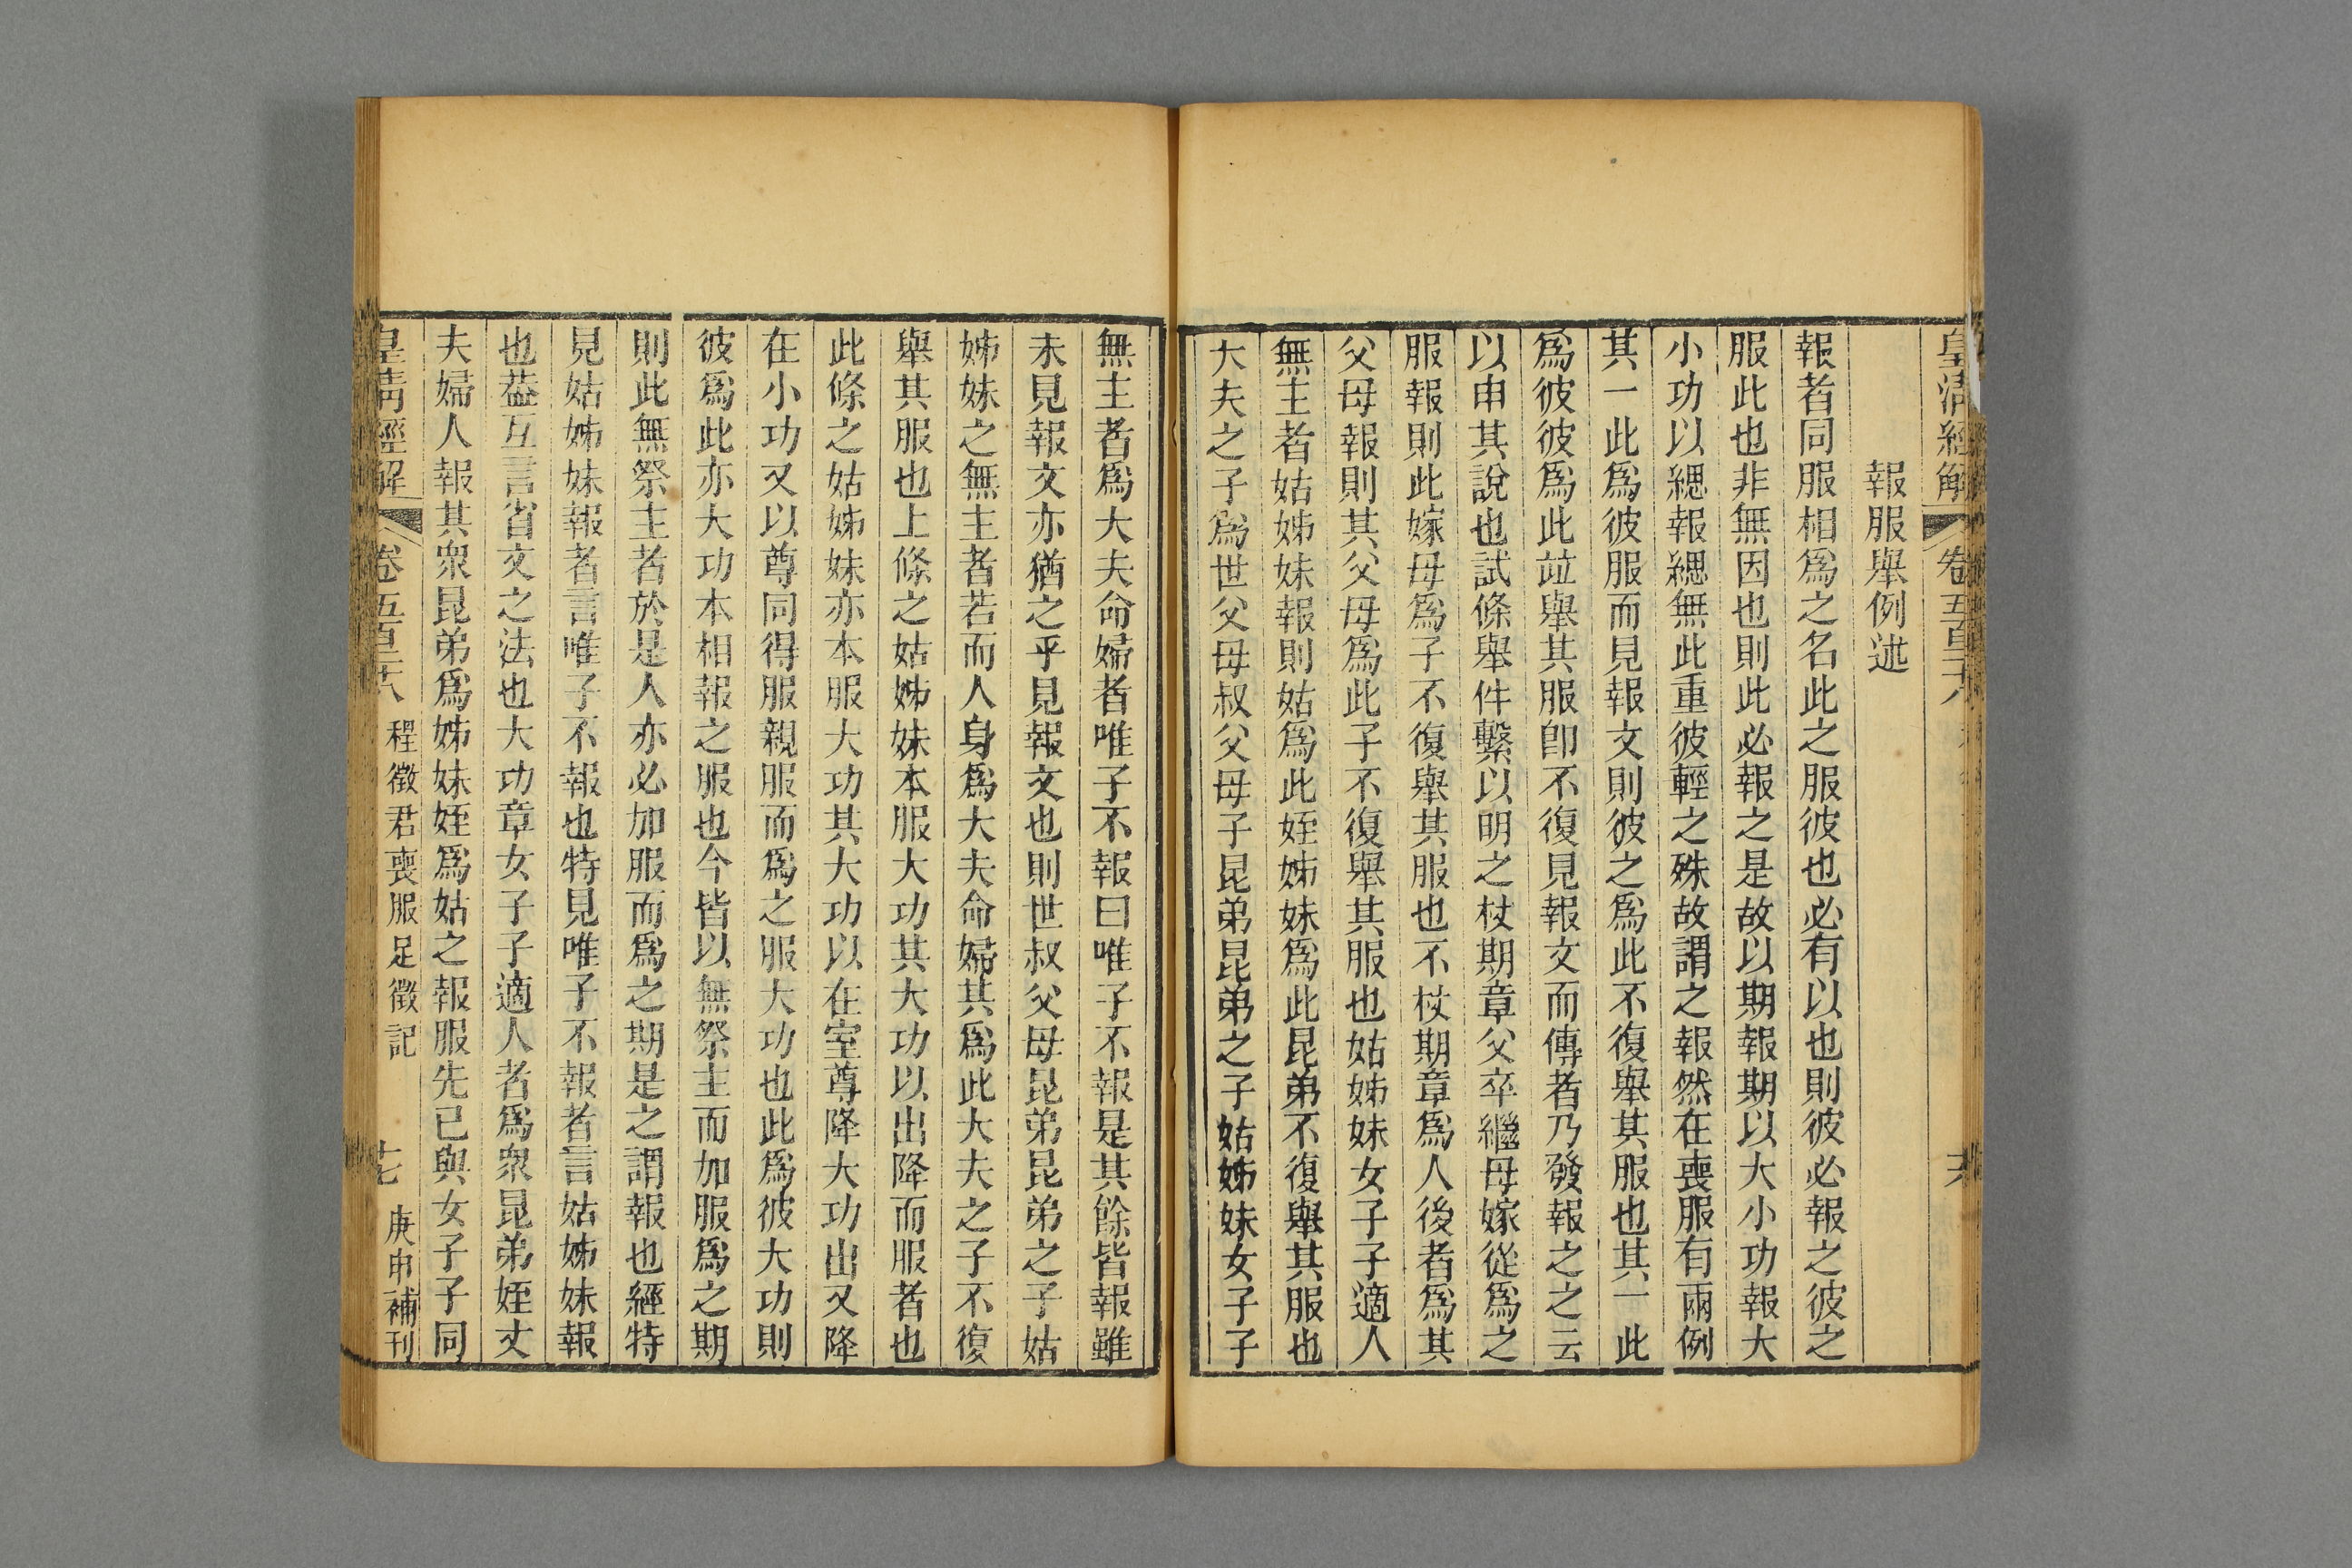 皇清經解 卷五百二十八 十六
報服舉例述
報者同服相爲之名此之服彼也必有以也則彼必報之彼之
服此也非無因也則此必報之是故以期報期以大小功報大
小功以緦報緦無此重彼輕之殊故謂之報然在喪服有兩例
其一此爲彼服而見報文則彼之爲此不復舉其服也其一此
爲彼彼爲此竝舉其服卽不復見報文而傳者乃發報之之云
以申其說也試條舉件繫以明之杖期章父卒繼母嫁從爲之
服報則此嫁母爲子不復舉其服也不杖期章爲人後者爲其
父母報則其父母爲此子不復舉其服也姑姊妹女子子適人
無主者姑姊妹報則姑爲此姪姊妹爲此昆弟不復舉其服也
大夫之子爲世父母叔父母子昆弟昆弟之子姑姊妹女子子
無主者爲大夫命婦者唯子不報曰唯子不報是其餘皆報雖
未見報文亦猶之乎見報文也則世叔父母昆弟昆弟之子姑
姊妹之無主者若而人身爲大夫命婦其爲此大夫之子不復
舉其服也上條之姑姊妹本服大功其大功以出降而服者也
此條之姑姊妹亦本服大功其大功以在室尊降大功出又降
在小功又以尊同得服親服而爲之服大功也此爲彼大功則
彼爲此亦大功本相報之服也今皆以無祭主而加服爲之期
則此無祭主者於是人亦必加服而爲之期是之謂報也經特
見姑姊妹報者言唯子不報也特見唯子不報者言姑姊妹報
也葢互言省文之法也大功章女子子適人者爲衆昆弟姪丈
夫婦人報其衆昆弟爲姊妹姪爲姑之報服先已與女子子同
皇清經解 卷五百二十八 程徵君喪服足徵記 十七 庚申補刊